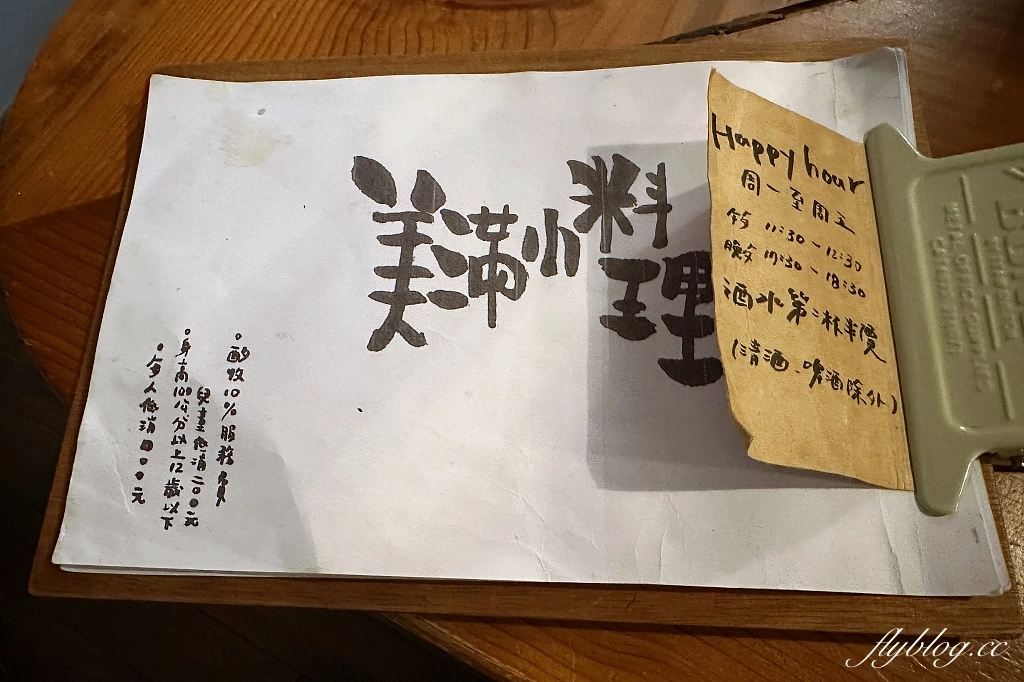 美滿小料理
Happy hour
周一至周五
午歺 11:30-12:30
晚歺 17:30-18:30
酒水第二杯半價
(清酒、啤酒除外)
。每人低消四00元
。身高100公分以上12歲以下
兒童低消二00元
。酌收10%服務費
flyblog.cc